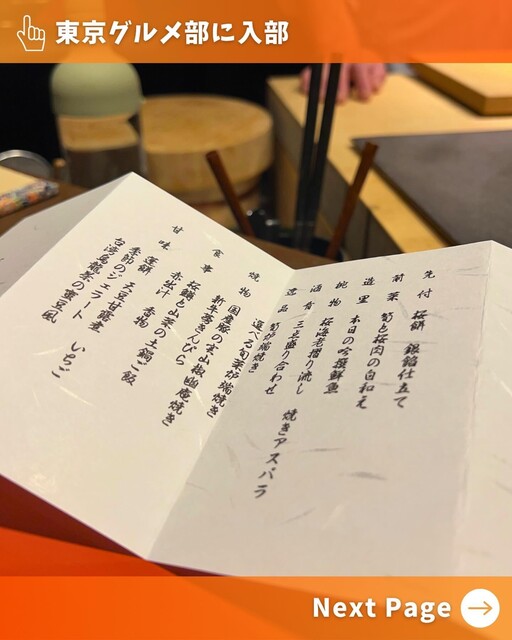 東京グルメ部に入部
先付 桜鯛 銀餡仕立て
前菜 筍と桜肉の白和え
造里 本日の吟撰鮮魚
椀物 桜海老摺り流し
酒肴 三点盛り合わせ 焼きアスパラ
逸品 筍炉端焼き
選べる旬菜炉端焼き
焼物 国産豚の実山椒幽庵焼き
新牛蒡きんぴら
食事 桜鯛と山菜の土鍋ご飯
赤出汁 香物
甘味 蓬餅 天豆甘露煮
季節のジェラート いちご
台湾烏龍茶の蜜豆風
Next Page